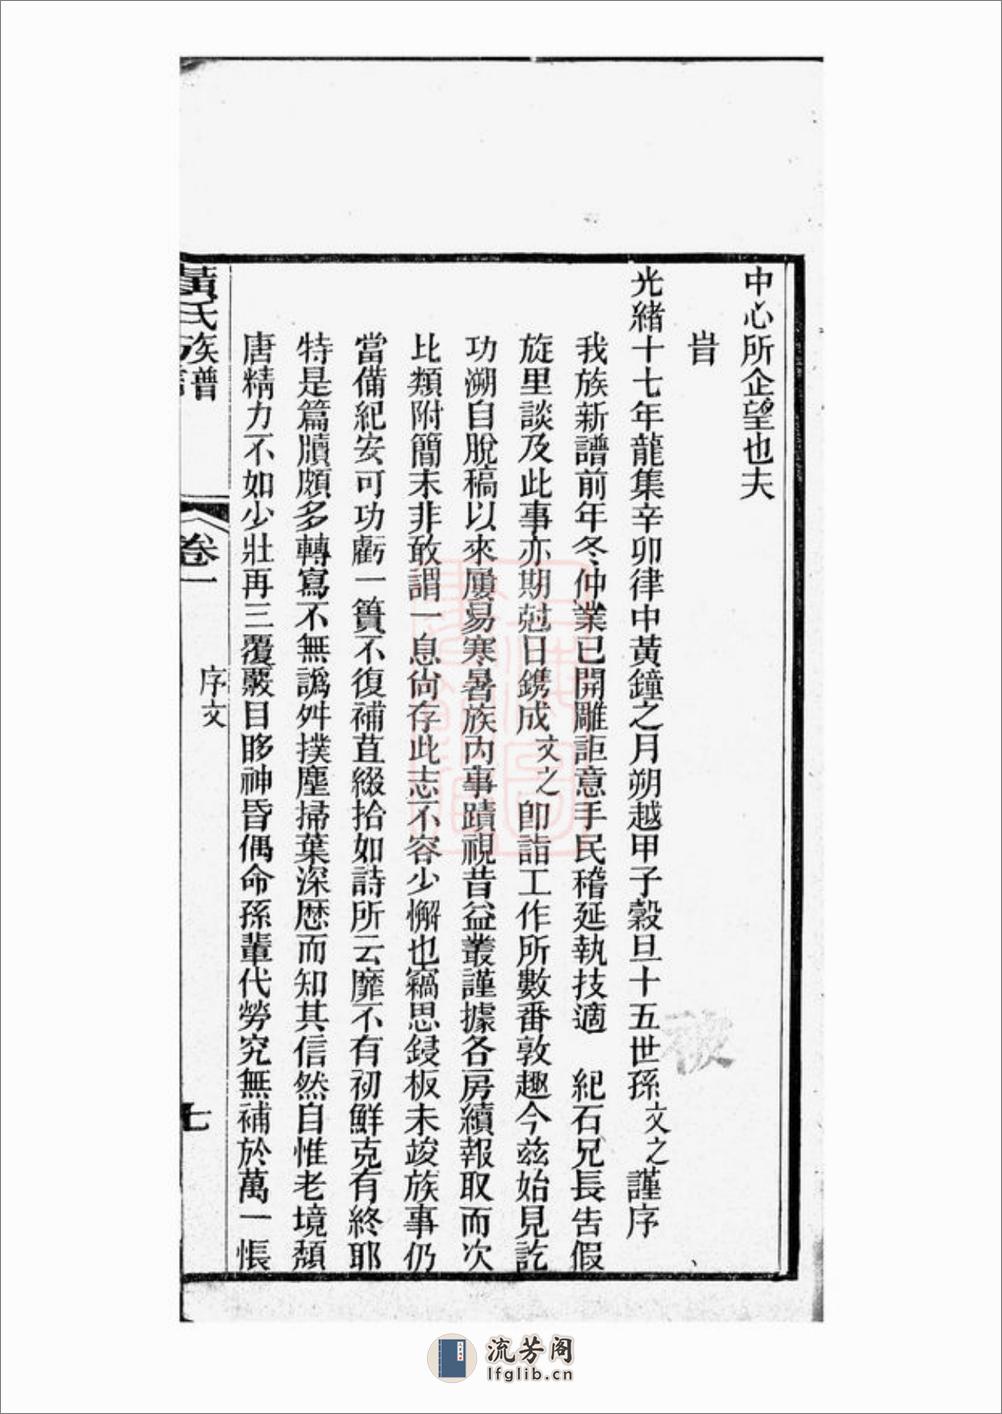 中心所企望也夫
旹
光緒十七年龍集辛卯律中黃鐘之月朔越甲子穀旦十五世孫文之謹序
我族新譜前年冬仲業已開雕詎意手民稽延執技適 紀石兄長告假
旋里談及此事亦期尅日鐫成文之卽詣工作所數番敦趣今茲始見訖
功溯自脫稿以來屢易寒暑族內事蹟視昔益叢謹據各房續報取而次
比類附簡末非敢謂一息尙存此志不容少懈也竊思鋟板未竣族事仍
當備紀安可功虧一簣不復補苴綴拾如詩所云靡不有初鮮克有終耶
特是篇牘頗多轉寫不無譌舛撲塵掃葉深歷而知其信然自惟老境頹
唐精力不如少壯再三覆覈目眵神昏偶命孫輩代勞究無補於萬一悵
黃氏族譜 卷一 序文 七
流芳阁
lfglib.cn